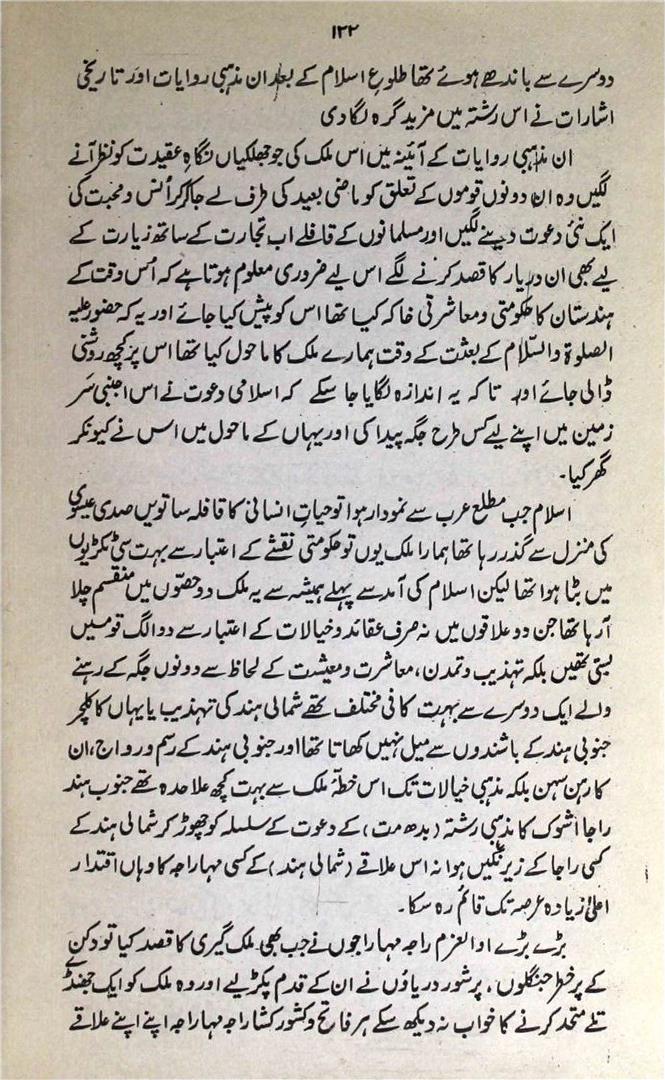 ۱۲۲
دوسرے سے باندھے ہوئے تھا طلوعِ اسلام کے بعد ان مذہبی روایات اور تاریخی
اشارات نے اس رشتہ میں مزید گرہ لگا دی
ان مذہبی روایات کے آئینہ میں اس ملک کی جو جھلکیاں نگاہِ عقیدت کو نظر آنے
لگیں وہ ان دونوں قوموں کے تعلق کو ماضی بعید کی طرف لے جاکر اُنس و محبت کی
ایک نئی دعوت دینے لگیں اور مسلمانوں کے قافلے اب تجارت کے ساتھ زیارت کے
لیے بھی ان دیار کا قصد کرنے لگے اس لیے ضروری معلوم ہوتا ہے کہ اُس وقت کے
ہندستان کا حکومتی و معاشرتی خاکہ کیا تھا اس کو پیش کیا جائے اور یہ کہ حضور علیہ
الصلوۃ والسّلام کے بعثت کے وقت ہمارے ملک کا ماحول کیا تھا اس پر کچھ روشنی
ڈالی جائے اور تاکہ یہ اندازہ لگایا جا سکے کہ اسلامی دعوت نے اس اجنبی سر
زمین میں اپنے لیے کس طرح جگہ پیدا کی اور یہاں کے ماحول میں اس نے کیونکر
گھر کیا۔
اسلام جب مطلع عرب سے نمودار ہوا تو حیاتِ انسانی کا قافلہ ساتویں صدی عیسوی
کی منزل سے گذر رہا تھا ہمارا ملک یوں تو حکومتی نقشے کے اعتبار سے بہت سی ٹکڑیوں
میں بٹا ہوا تھا لیکن اسلام کی آمد سے پہلے ہمیشہ سے یہ ملک دو حصّوں میں منقسم چلا
آرہا تھا جن دو علاقوں میں نہ صرف عقائد و خیالات کے اعتبار سے دو الگ قومیں
بستی تھیں بلکہ تہذیب و تمدن، معاشرت و معیشت کے لحاظ سے دونوں جگہ کے رہنے
والے ایک دوسرے سے بہت کافی مختلف تھے شمالی ہند کی تہذیب یا یہاں کا کلچر
جنوبی ہند کے باشندوں سے میل نہیں کھاتا تھا اور جنوبی ہند کے رسم و رواج، ان
کا رہن سہن بلکہ مذہبی خیالات تک اس خطۂ ملک سے بہت کچھ علاحدہ تھے جنوب ہند
راجا اشوک کا مذہبی رشتہ (بدھ مت) کے دعوت کے سلسلہ کو چھوڑ کر شمالی ہند کے
کسی راجا کے زیرِ نگیں ہوا نہ اس علاقے (شمالی ہند) کے کسی مہاراجہ کا وہاں اقتدار
اعلیٰ زیادہ عرصہ تک قائم رہ سکا۔
بڑے بڑے اوالعزم راجہ مہاراجوں نے جب بھی ملک گیری کا قصد کیا تو دکن
کے پرخطر جنگلوں، پرشور دریاؤں نے ان کے قدم پکڑ لیے اور وہ ملک کو ایک جھنڈے
تلے متحد کرنے کا خواب نہ دیکھ سکے ہر فاتح و کشور کشا راجہ مہاراجہ اپنے اپنے علاقے